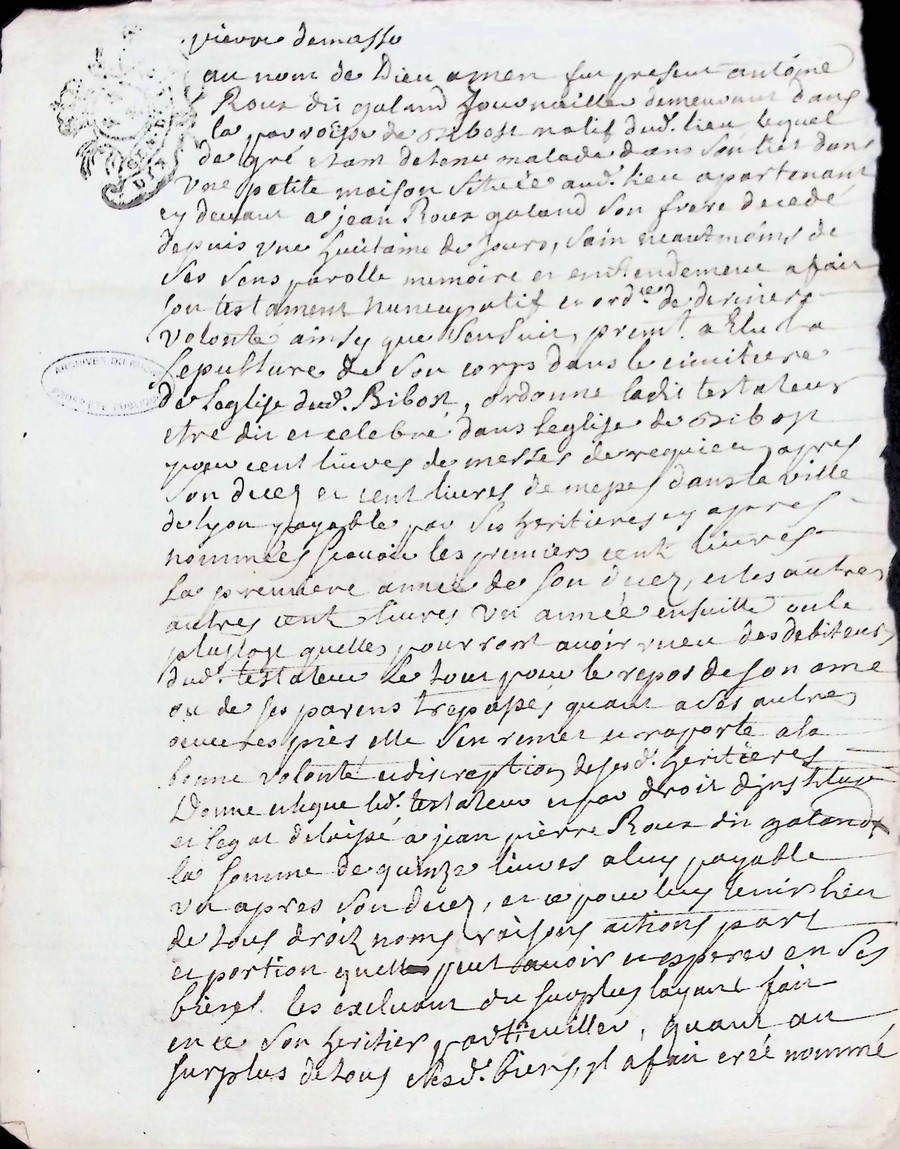 pierre demasso
au nom de Dieu amen fut present antoine
Roux dit galand Journaillier demeurant dans
la paroisse de Ribost natif dud. lieu lequel
de gré etant detenu malade dans son lict dans
une petite maison située aud. lieu apartenant
cy devant a jean Roux galand son frere decedé
depuis une huitaine de jours, sain neantmoins de
ses sens parolle memoire et entendement a fait
son testament nuncupatif et ordce. de derniere
volonté ainsy que s'ensuit, premt. a Elu la
sepulture de son corps dans le cimitiere
de leglise dud. Ribost, ordonne ledit testateur
etre dit et celebré dans leglise de Ribost
pour cent livres de messes de requiem apres
son decez et cent livres de messes dans la ville
de lyon payable par ses heritieres cy apres
nommées scavoir les premiers cent livres
la premiere année de son decez, et les autres
autres cent livres un année ensuitte ou le
plustot quelles pourront avoir des debiteurs
dud. testateur le tout pour le repos de son ame
ou de ses parens trepassés quant a ses autres
oeuvres pies elle s'en remet et raporte a la
bonne volonté et discreption de sesd. heritieres
Donne et legue led. testateur et par droit d'institution
et legat delaissé a jean pierre Roux dit galand
la somme de quinze livres a luy payable
un apres son decez, et ce pour luy tenir lieu
de tous droit noms raisons actions part
et portion quell peut avoir et esperer en ses
biens les excluant du surplus layant fait
en ce son heritier particuiller, quant au
surplus de tous et sesd. biens, il a fait créé nommé